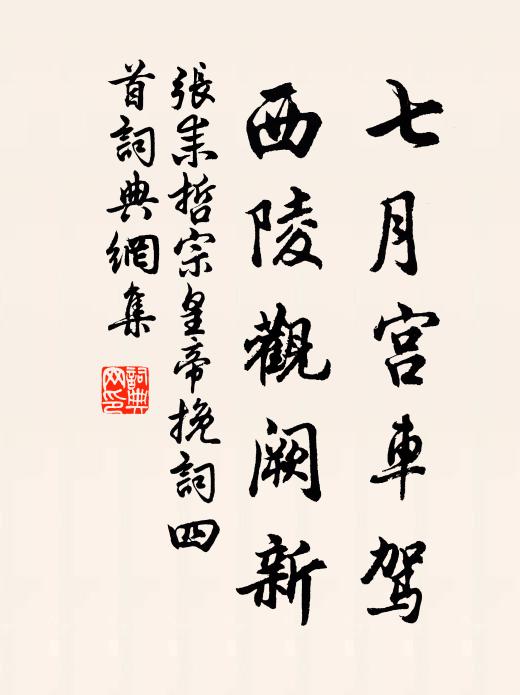 七月宫車駕
西陵觀阙新
張耒哲宗皇帝挽詞四
首詞典網集
詞典
网印